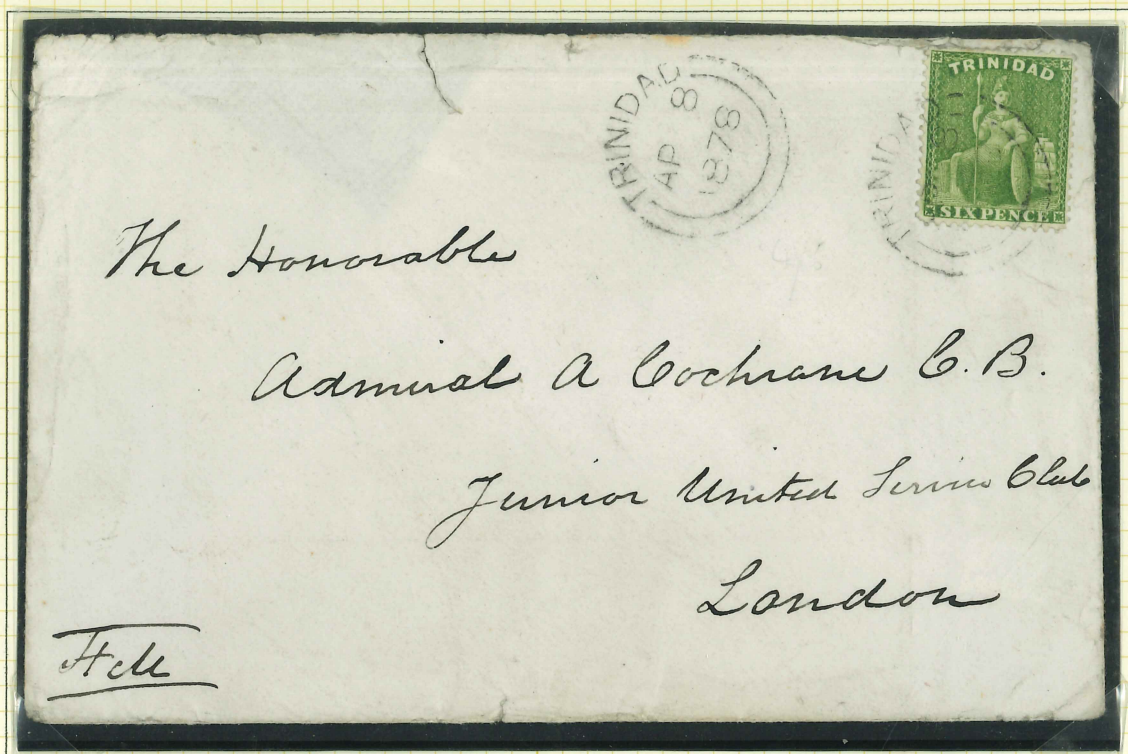 TRINIDAD
AP 8
1878
TRINIDAD
TRINIDAD
SIX PENCE
The Honorable
Admiral A Cochrane C.B.
Junior United Service Club
London